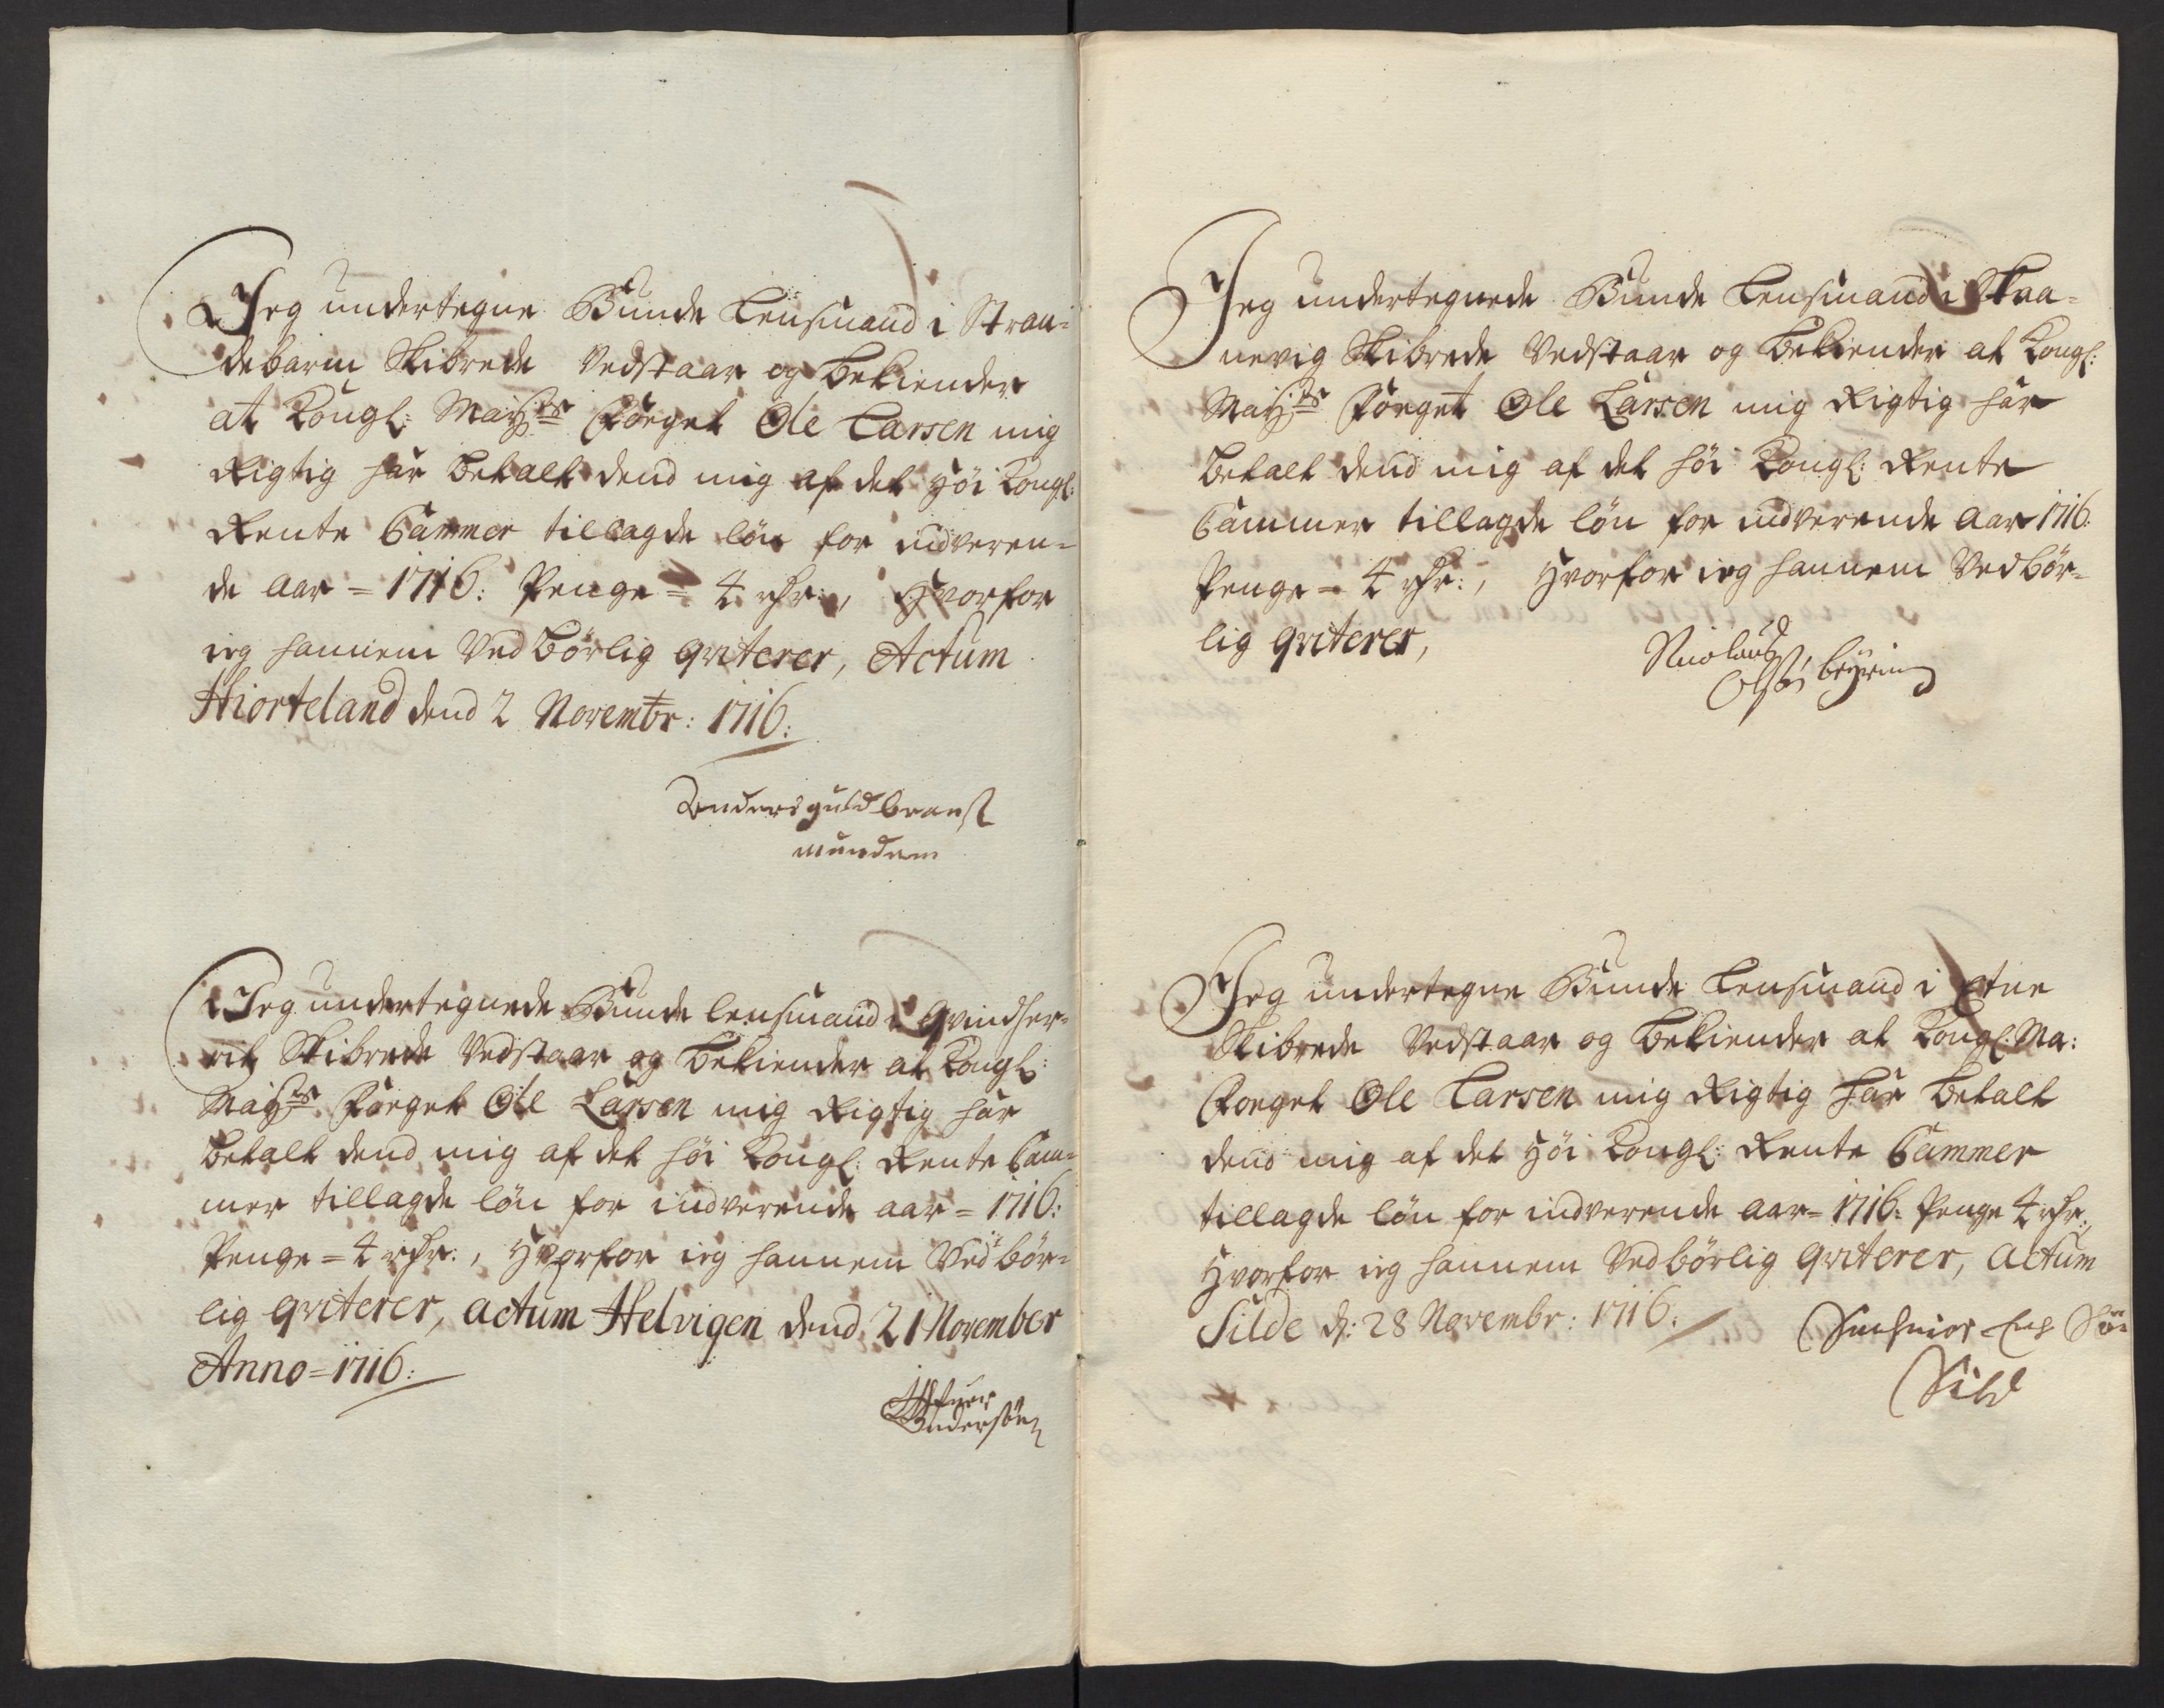 Jeg undertegne Bunde Lensmand i Stran-
debarm Skibrede Vedstaar og bekiender
at Kongl: Maÿts Foeget Ole Larsen mig
Rigtig har betalt dend mig af det Höi Kongl:
Rente Cammer tillagde lön for indveren-
de aar = 1716: Penge = 4 rdr:, Hvorfor
ieg hannem Vedbörlig qviterer, Actum
Hiorteland dend 2 Novembr: 1716:
Anders guldbrans

Jeg undertegnede Bunde lensmand i Qvindher-
rit Skibrede Vedstaar og bekiender at Kongl:
Maÿts Foeget Ole Larsen mig Rigtig har
betalt dend mig af det höi Kongl: Rente Cam-
mer tillagde lön for indverende aar = 1716:
Penge = 4 rdr:, Hvorfor ieg hannem Vedbör-
lig qviterer, actum Helvigen dend 21 November
Anno = 1716:
Andersön

Jeg undertegnede Bunde Lensmand i Skaa-
nevig Skibrede Vedstaar og bekiender at Kongl:
Maÿts Foeget Ole Larsen mig Rigtig har
betalt dend mig af det höi Kongl: Rente
Cammer tillagde lön for indverende aar 1716:
Penge = 4 rdr:, Hvorfor ieg hannem Vedbör-
lig qviterer,

Jeg undertegne Bunde Lensmand i Etne
Skibrede Vedstaar og bekiender at Kongl: Ma:
Foeget Ole Larsen mig Rigtig har betalt
dend mig af det Höi Kongl: Rente Cammer
tillagde lön for indverende aar = 1716: Penge 4 rdr:,
Hvorfor ieg hannem Vedbörlig qviterer, actum
Silde d: 28 Novembr: 1716:
Sild